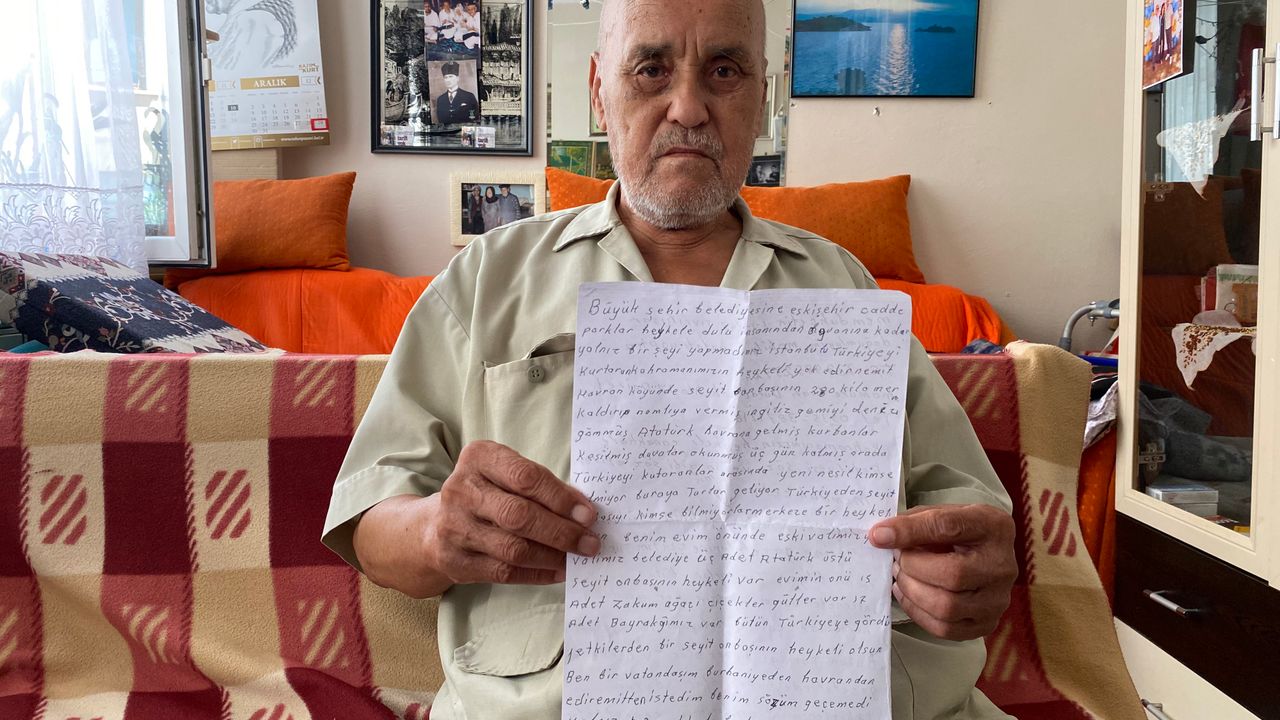 ARALIK
KAZIM
KURT
Büyük şehir belediyesine eskişehir cadde
parklar heykele dolu insanından hayvana kadar
yalnız bir şeyi yapmadınız istanbulu Türkiyeyi
Kurtaran kahramanımızın heykeli yok edirnemit
Havran köyünde seyit onbaşının 280 kilo mermi
kaldırıp namluya vermiş ingiliz gemiyi denize
gömmüş Atatürk havrana gelmiş kurbanlar
kesilmiş dualar okunmuş üç gün kalmış orada
Türkiyeyi kutaranlar arasında yeni nesil kimse
bilmiyor buraya Turlar geliyor Türkiyeden seyit
onbaşıyı kimse bilmiyorlar merkeze bir heykel
benim evim önünde eski valimiz
valimiz belediye üç Adet Atatürk üstü
seyit onbaşının heykeli var evimin önü
Adet Zakum ağacı çiçekler güller var
Adet Bayrakğımız var bütün Türkiyeye gördü
yetkilerden bir seyit onbaşının heykeli olsun
Ben bir vatandaşım burhaniyeden havrandan
ediremitten istedim benim sözüm geçemedi